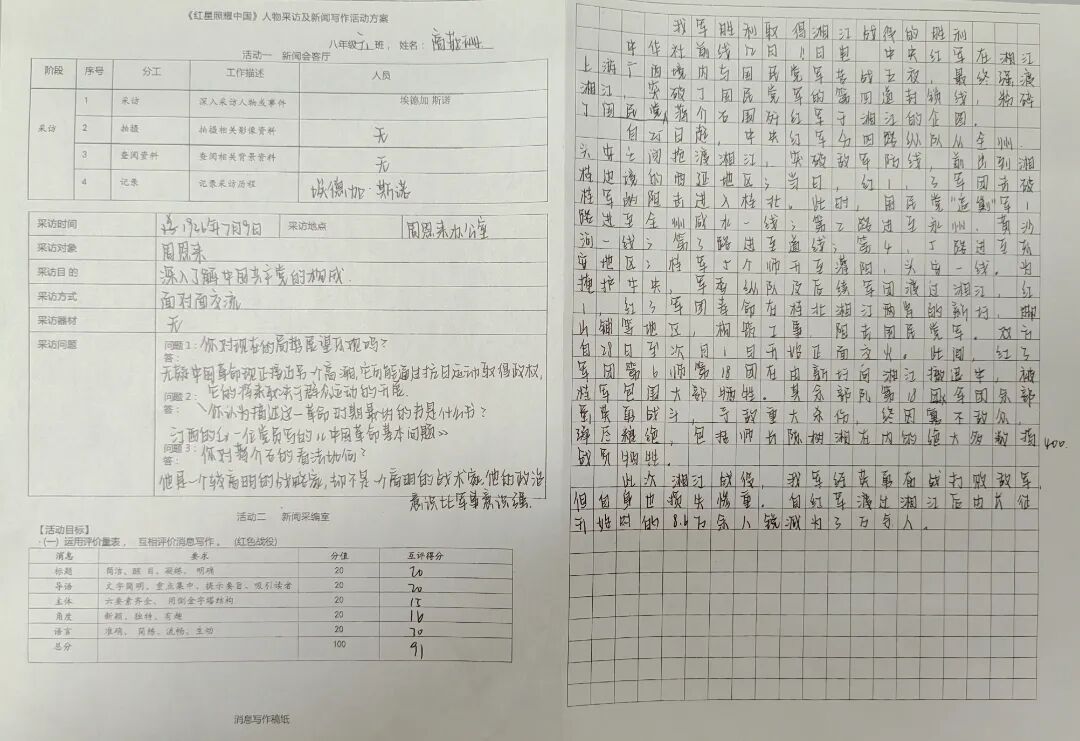 《红星照耀中国》人物采访及新闻写作活动方案
八年级 班，姓名：
活动一 新闻会客厅
阶段 序号 分工 工作描述 人员
采访 1 采访 深入采访人物或事件 埃德加 斯诺
2 拍摄 拍摄相关影像资料 无
3 查阅资料 查阅相关背景资料 无
4 记录 记录采访历程 埃德加·斯诺
采访时间 1936年7月9日 采访地点 周恩来办公室
采访对象 周恩来
采访目的 深入了解中国共产党的构成.
采访方式 面对面交流
采访器材 无
采访问题 问题1：你对现在的局势展望乐观吗？
答：
无疑中国革命现正接近另一个高潮,它可能通过抗日运动取得政权,
它的将来取决于群众运动的开展.
问题2：
答： 你认为描述这一革命时期最好的书是什么书？
一位党员写的《中国革命基本问题》
问题3：你对蒋介石的看法如何？
答：
他是一个较高明的战略家,却不是一个高明的战术家,他的政治
意识比军事意识强.
活动二 新闻采编室
【活动目标】
（一）运用评价量表，互相评价消息写作。（红色战役）
消息 要求 分值 互评得分
标题 简洁、醒目、凝练、明确 20 20
导语 文字简明、重点集中、提示要旨、吸引读者 20 20
主体 六要素齐全、用倒金字塔结构 20 15
角度 新颖、独特、有趣 20 16
语言 准确、简练、流畅、生动 20 20
总分 100 91
消息写作稿纸
我军胜利取得湘江战役的胜利
中华社前线12日1日电 中央红军在湘江
上游广西境内与国民党军苦战五夜，最终强渡
湘江，突破了国民党军的第四道封锁线，粉碎
了国民党蒋介石围歼红军于湘江的企图．
自25日起，中央红军分四路纵队从全州、
兴安之间抢渡湘江，突破敌军防线，前出到湘
桂边境的西延地区；当日，红1、3军团击破
桂军的阻击进入桂北．此时，国民党"追剿"军1
路进至全州咸水一线；第2路进至永州、黄沙
河一线；第3路进至道线；第4、5路进至东
安地区；桂军5个师开至灌阳，兴安一线．为
掩护中央，军委纵队及后续军团渡过湘江，红
1，红3军团奉命在桂北湘江两岸的新圩、脚
山铺等地区，构筑工事，阻击国民党军．双方
自28日至次日1日开始正面交火．此间，红3
军团第6师第18团在由新圩向湘江撤退中，被
桂军包围大部牺牲．其余部队第18团军团余部
英勇战斗，予敌重大杀伤，终因寡不敌众，
弹尽粮绝，包括师长陈树湘在内的绝大多数指400
战员牺牲．
此次湘江战役，我军经英勇奋战打败敌军，
但自身也损失惨重．自红军渡过湘江后由长征
开始时的8.6万余人锐减为3万多人．